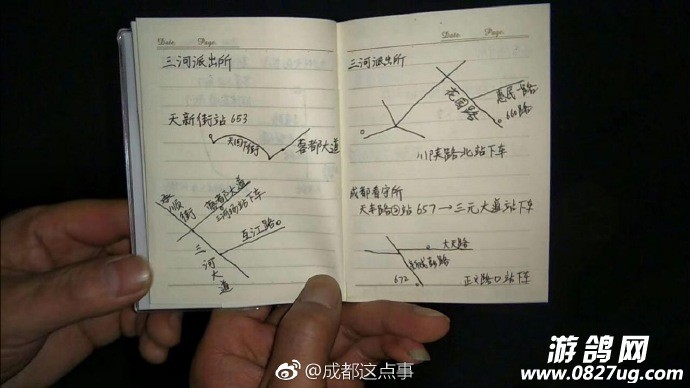 Date. Page.
三河派出所
天新街站 653
天回下街
蓉都大道
蓉都大道
三河场站下车
顺街
互江路
三河大道
Date. Page.
三河派出所
花园路
惠民一路
660路
川陕路北站下车
成都看守所
天丰路②站 657→三元大道站下车
大天路
672
正义路口站下车
@成都这点事
游鸽网
www.0827ug.com